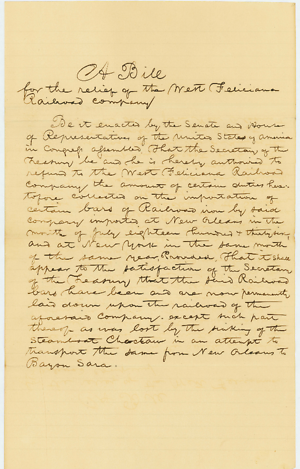 A Bill
for the relief of the West Feliciana
Railroad Company
Be it enacted by the Senate and House
of Representatives of the United States of America
in Congress assembled That the Secretary of the
Treasury be and he is hereby authorized to
refund to the West Feliciana Railroad
Company the amount of certain duties here-
tofore collected on the importation of
certain bars of Railroad iron by said
Company imported at New Orleans in the
month of July eighteen hundred & thirty
and at New York in the same month
of the same year, Provided, That it shall
appear to the satisfaction of the Secretary
of the Treasury that the said Railroad
bars have been and are now permanently
laid down upon the railroad of the
aforesaid Company, except such part
thereof as was lost by the sinking of the
Steamboat Choctaw in an attempt to
transport the same from New Orleans to
Bayou Sara.